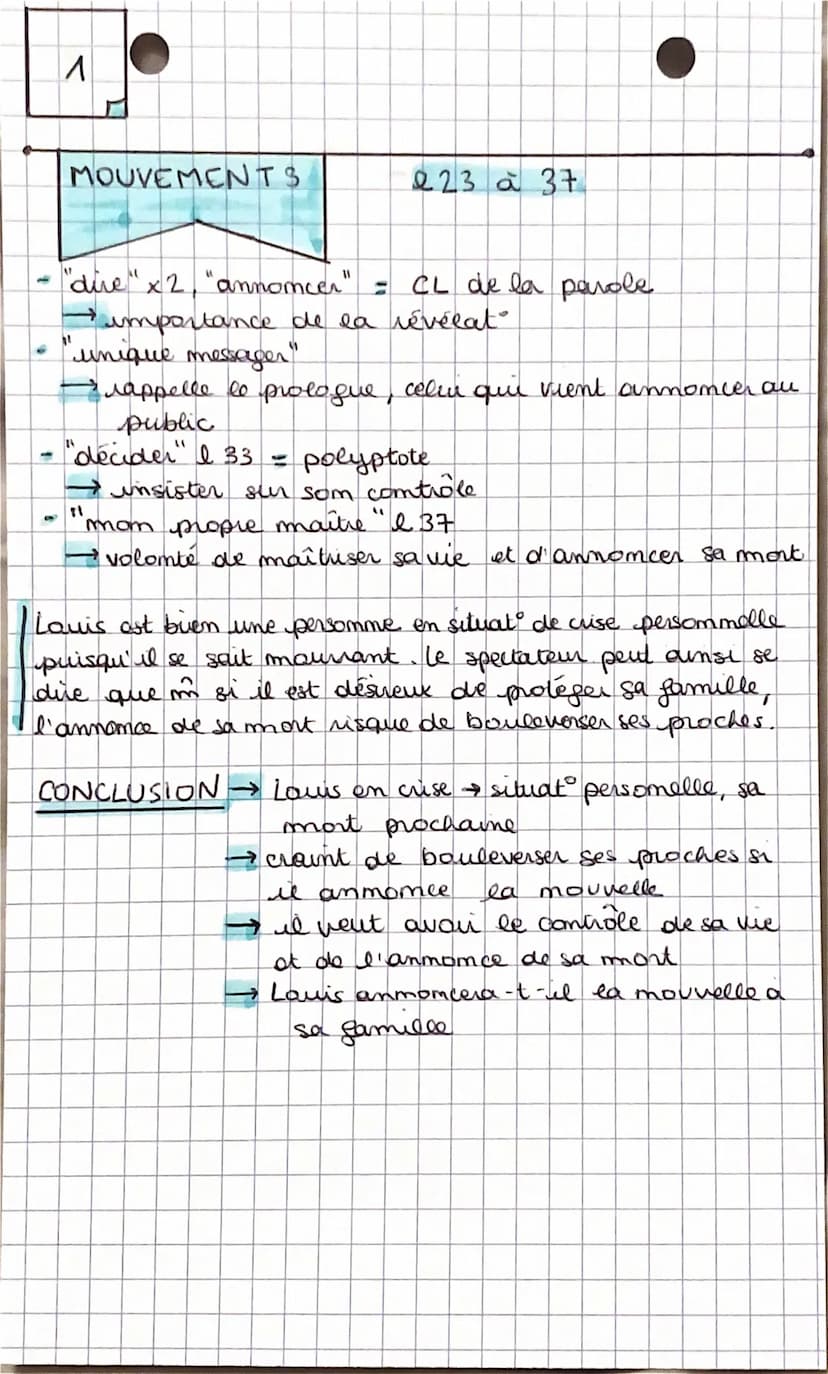 1
MOUVEMENT 3 l 23 à 37
- "dire" x 2, "annoncer" = CL de la parole
→ importance de la révélat°
- "unique messager"
→ rappelle le prologue, celui qui vient annoncer au
public
- "décider" l 33 = polyptote
→ insister sur son contrôle
- "mon propre maître" l 37
→ volonté de maîtriser sa vie et d'annoncer sa mort
Louis est bien une personne en situat° de crise personnelle
puisqu'il se sait mourant. Le spectateur peut ainsi se
dire que m̂ si il est désireux de protéger sa famille,
l'annonce de sa mort risque de bouleverser ses proches.
CONCLUSION → Louis en crise → situat° personelle, sa
mort prochaine
→ craint de bouleverser ses proches si
il annonce la nouvelle
→ il veut avoir le contrôle de sa vie
et de l'annonce de sa mort
→ Louis annoncera-t-il la nouvelle à
sa famille